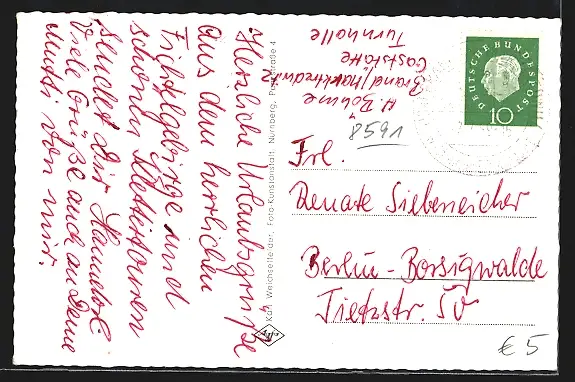 Herzliche Urlaubsgrüße
aus dem herrlichen
Fichtelgebirge und
schönen Klettertouren
sendet Dir Hannelore
Viele Grüße auch an Deine
Mutti von mir.
H. Böhme
Brand/Marktredwitz
Gaststätte
Turnhalle
8591
DEUTSCHE BUNDESPOST
10
Frl.
Renate Siebeneicher
Berlin-Borsigwalde
Tietzstr. 50
Karl Weichselfelder, Foto-Kunstanstalt, Nürnberg,
Agfa
€ 5